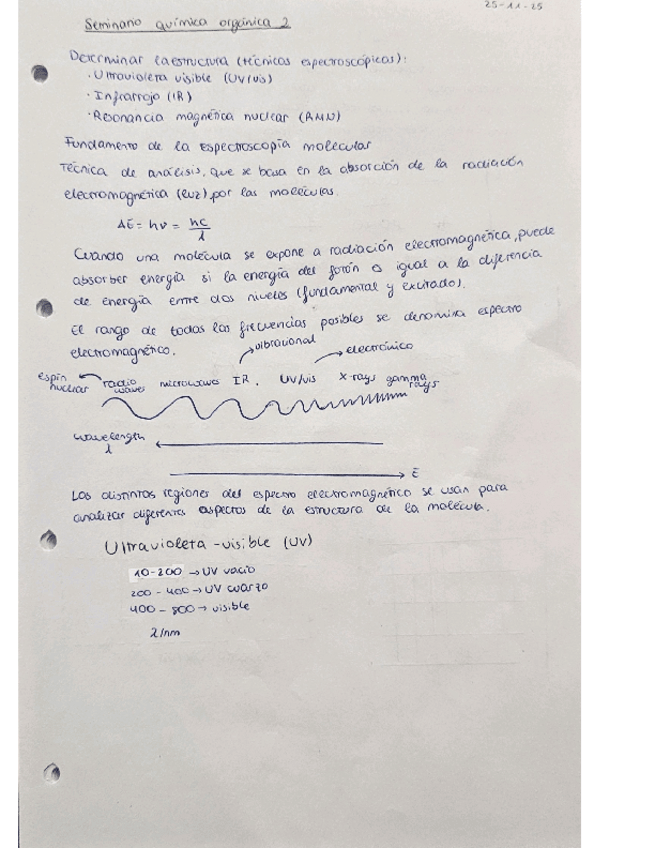 25-11-25
Seminario química orgánica 2
Determinar la estructura (técnicas espectroscópicas):
· Ultravioleta visible (UV/vis)
· Infrarrojo (IR)
· Resonancia magnética nuclear (RMN)
Fundamento de la espectroscopía molecular
Técnica de análisis, que se basa en la absorción de la radiación
electromagnética (luz) por las moléculas.
ΔE = hν = hc/λ
Cuando una molécula se expone a radiación electromagnética, puede
absorber energía si la energía del fotón es igual a la diferencia
de energía entre dos niveles (fundamental y excitado).
El rango de todas las frecuencias posibles se denomina espectro
electromagnético.
vibracional
electrónico
espín nuclear
radio waves microwaves IR. UV/vis X-rays gamma rays
wavelength
λ
E
Los distintos regiones del espectro electromagnético se usan para
analizar diferentes aspectos de la estructura de la molécula.
Ultravioleta-visible (UV)
10-200 → UV vacío
200-400 → UV cuarzo
400-800 → visible
λ/nm